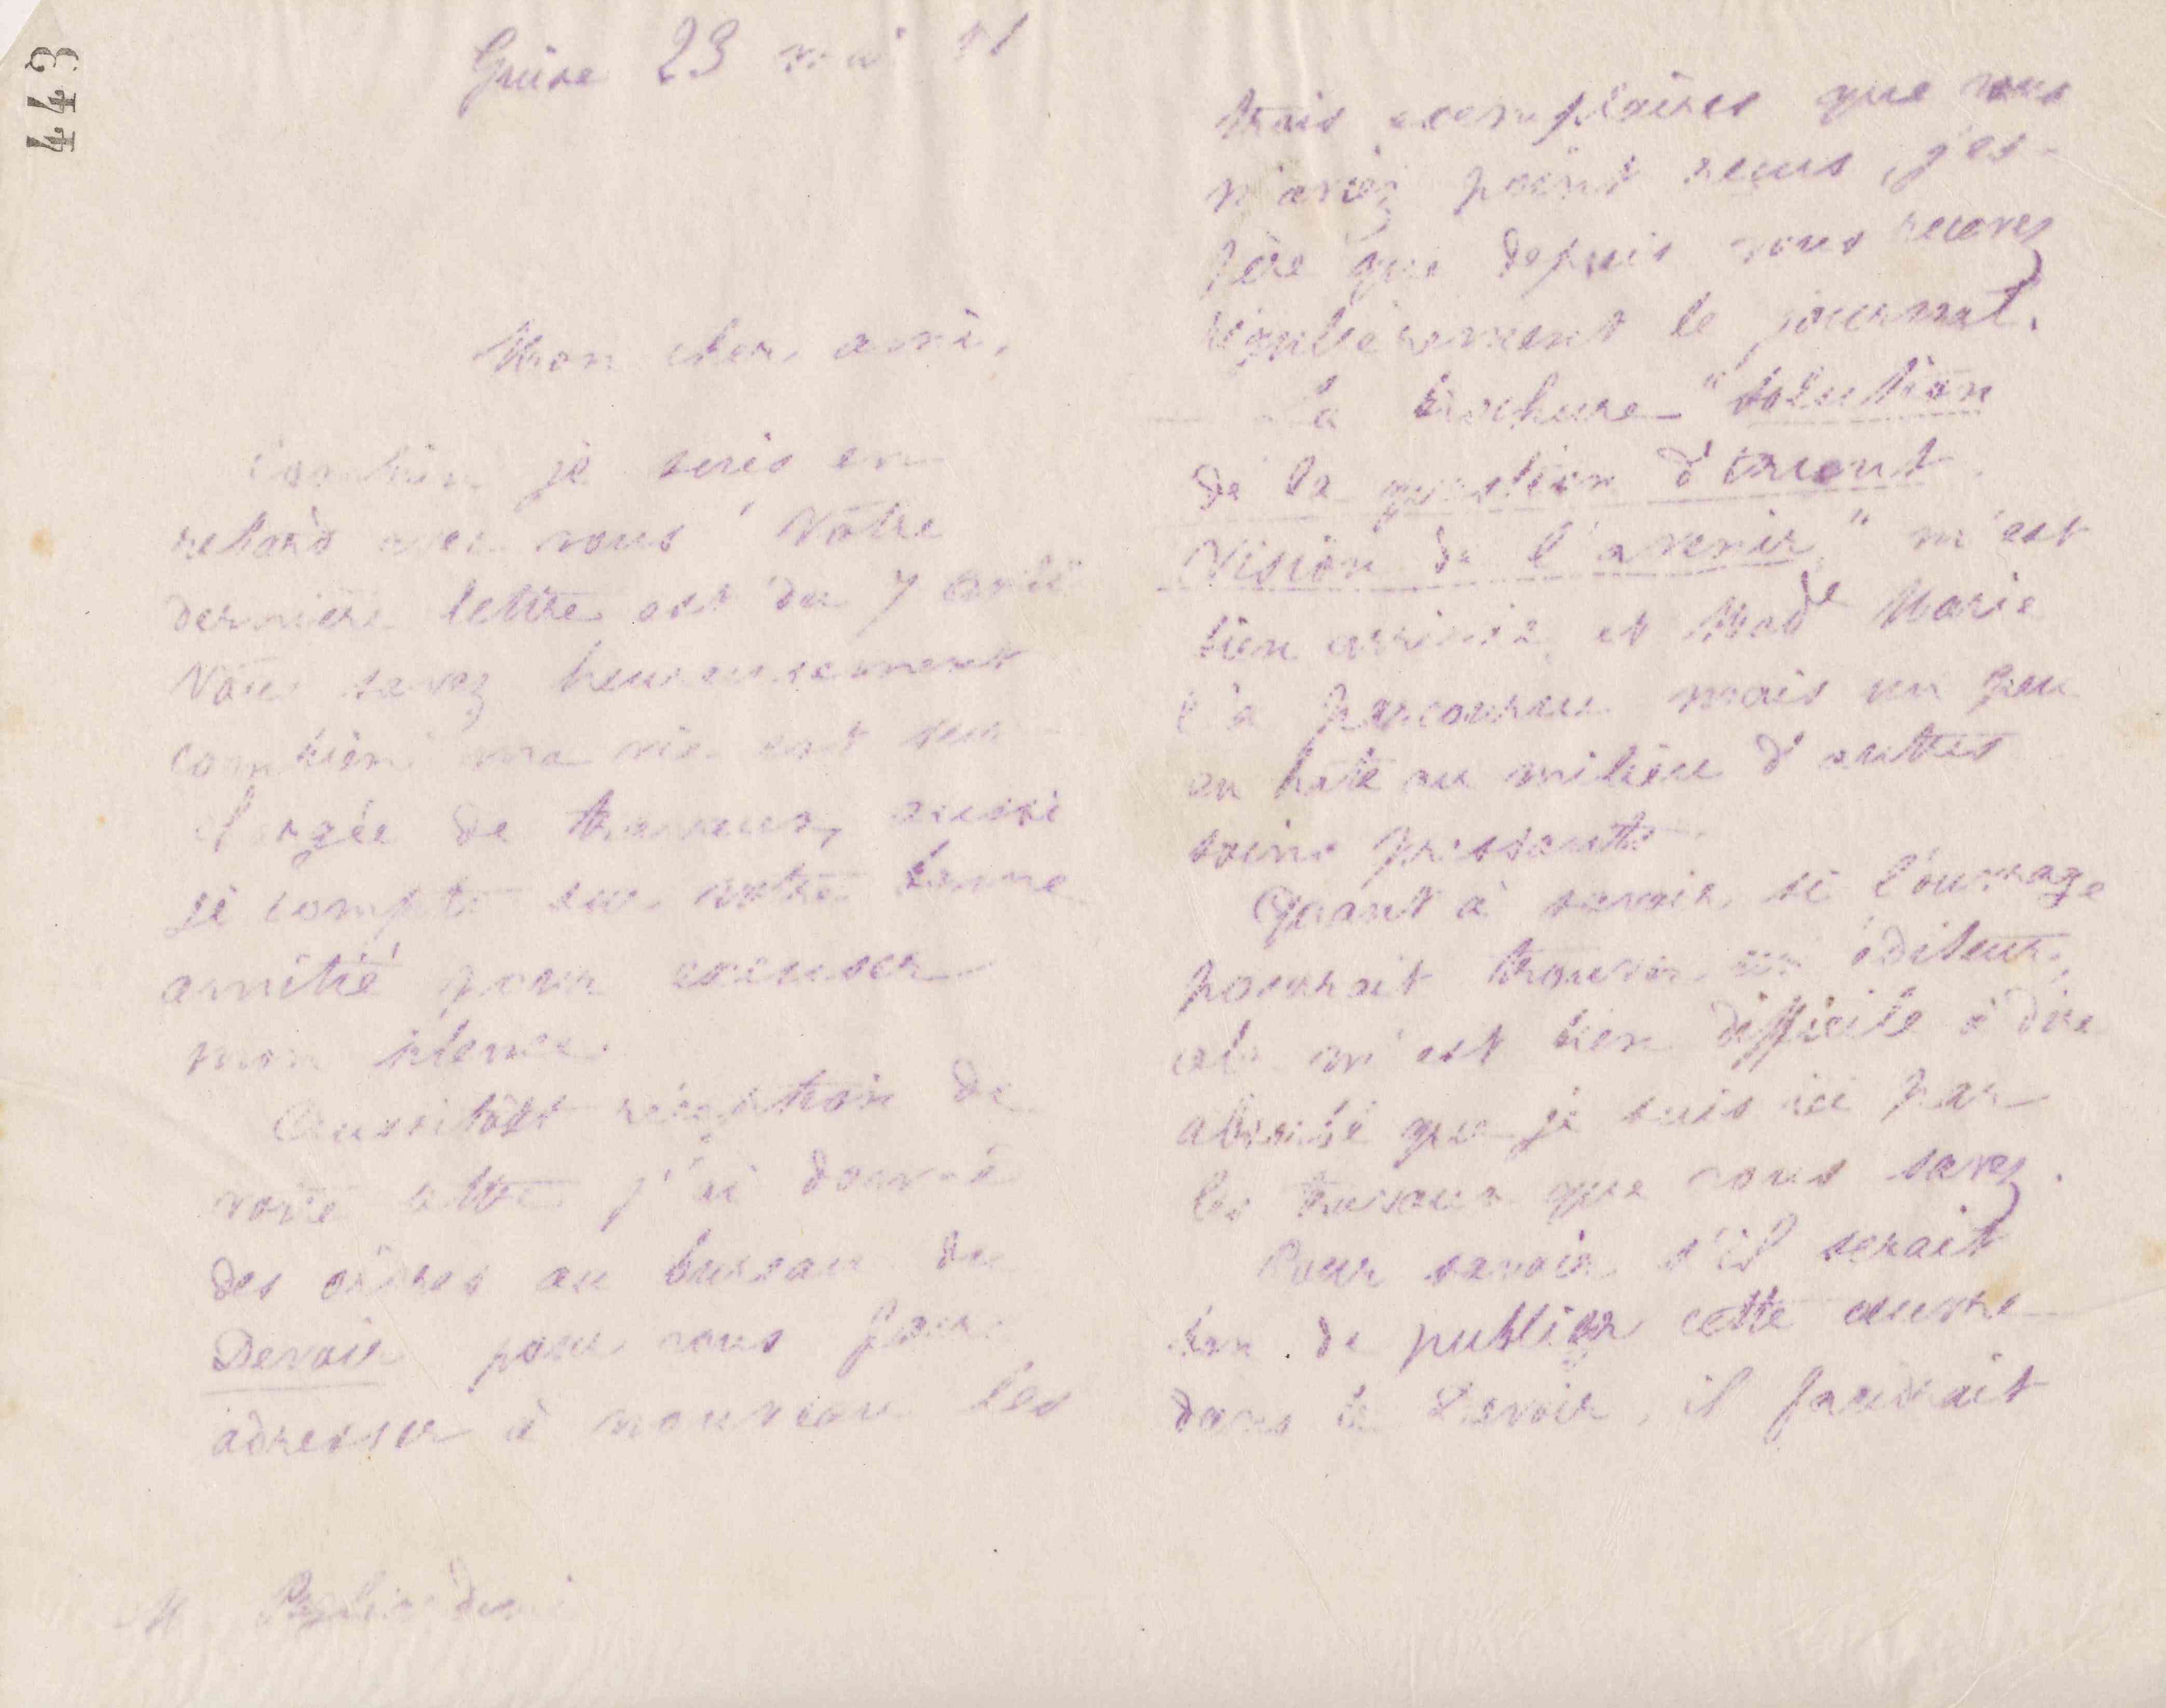 443
Guise 23 mai 81
Mon cher ami,
Combien je suis en
retard avec vous ! Votre
dernière lettre est du 7 avril
Vous savez heureusement
combien ma vie est sur-
chargée de travaux, aussi
je compte sur votre bonne
amitié pour excuser
mon silence.
Aussitôt réception de
votre lettre j'ai donné
des ordres au bureau du
Devoir pour vous faire
adresser à nouveau les
M Pagliardini
trois exemplaires que vous
n'aviez point reçus, j'es-
père que depuis vous recevez
régulièrement le journal.
La brochure "Solution
de la question d'Orient
Vision de l'avenir" m'est
bien arrivée et Made Marie
l'a parcourue mais un peu
en hâte au milieu d'autres
soins pressants.
Quant à savoir si l'ouvrage
pourrait trouver un éditeur,
cela m'est bien difficile à dire
absorbé que je suis ici par
les travaux que vous savez.
Pour savoir s'il serait
bon de publier cette œuvre
dans le Devoir, il faudrait